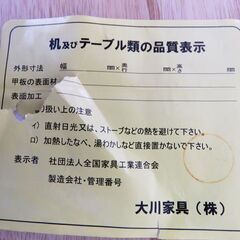 机及びテーブル類の品質表示
外形寸法 幅 mm×奥行 mm×高さ mm
甲板の表面材
表面加工
取扱い上の注意
イ)直射日光又は、ストーブなどの熱を避けて下さい。
ロ)加熱したなべ、湯わかしなど直接置かないで下さい。
表示者 社団法人全国家具工業連合会
製造会社・管理番号
大川家具(株)